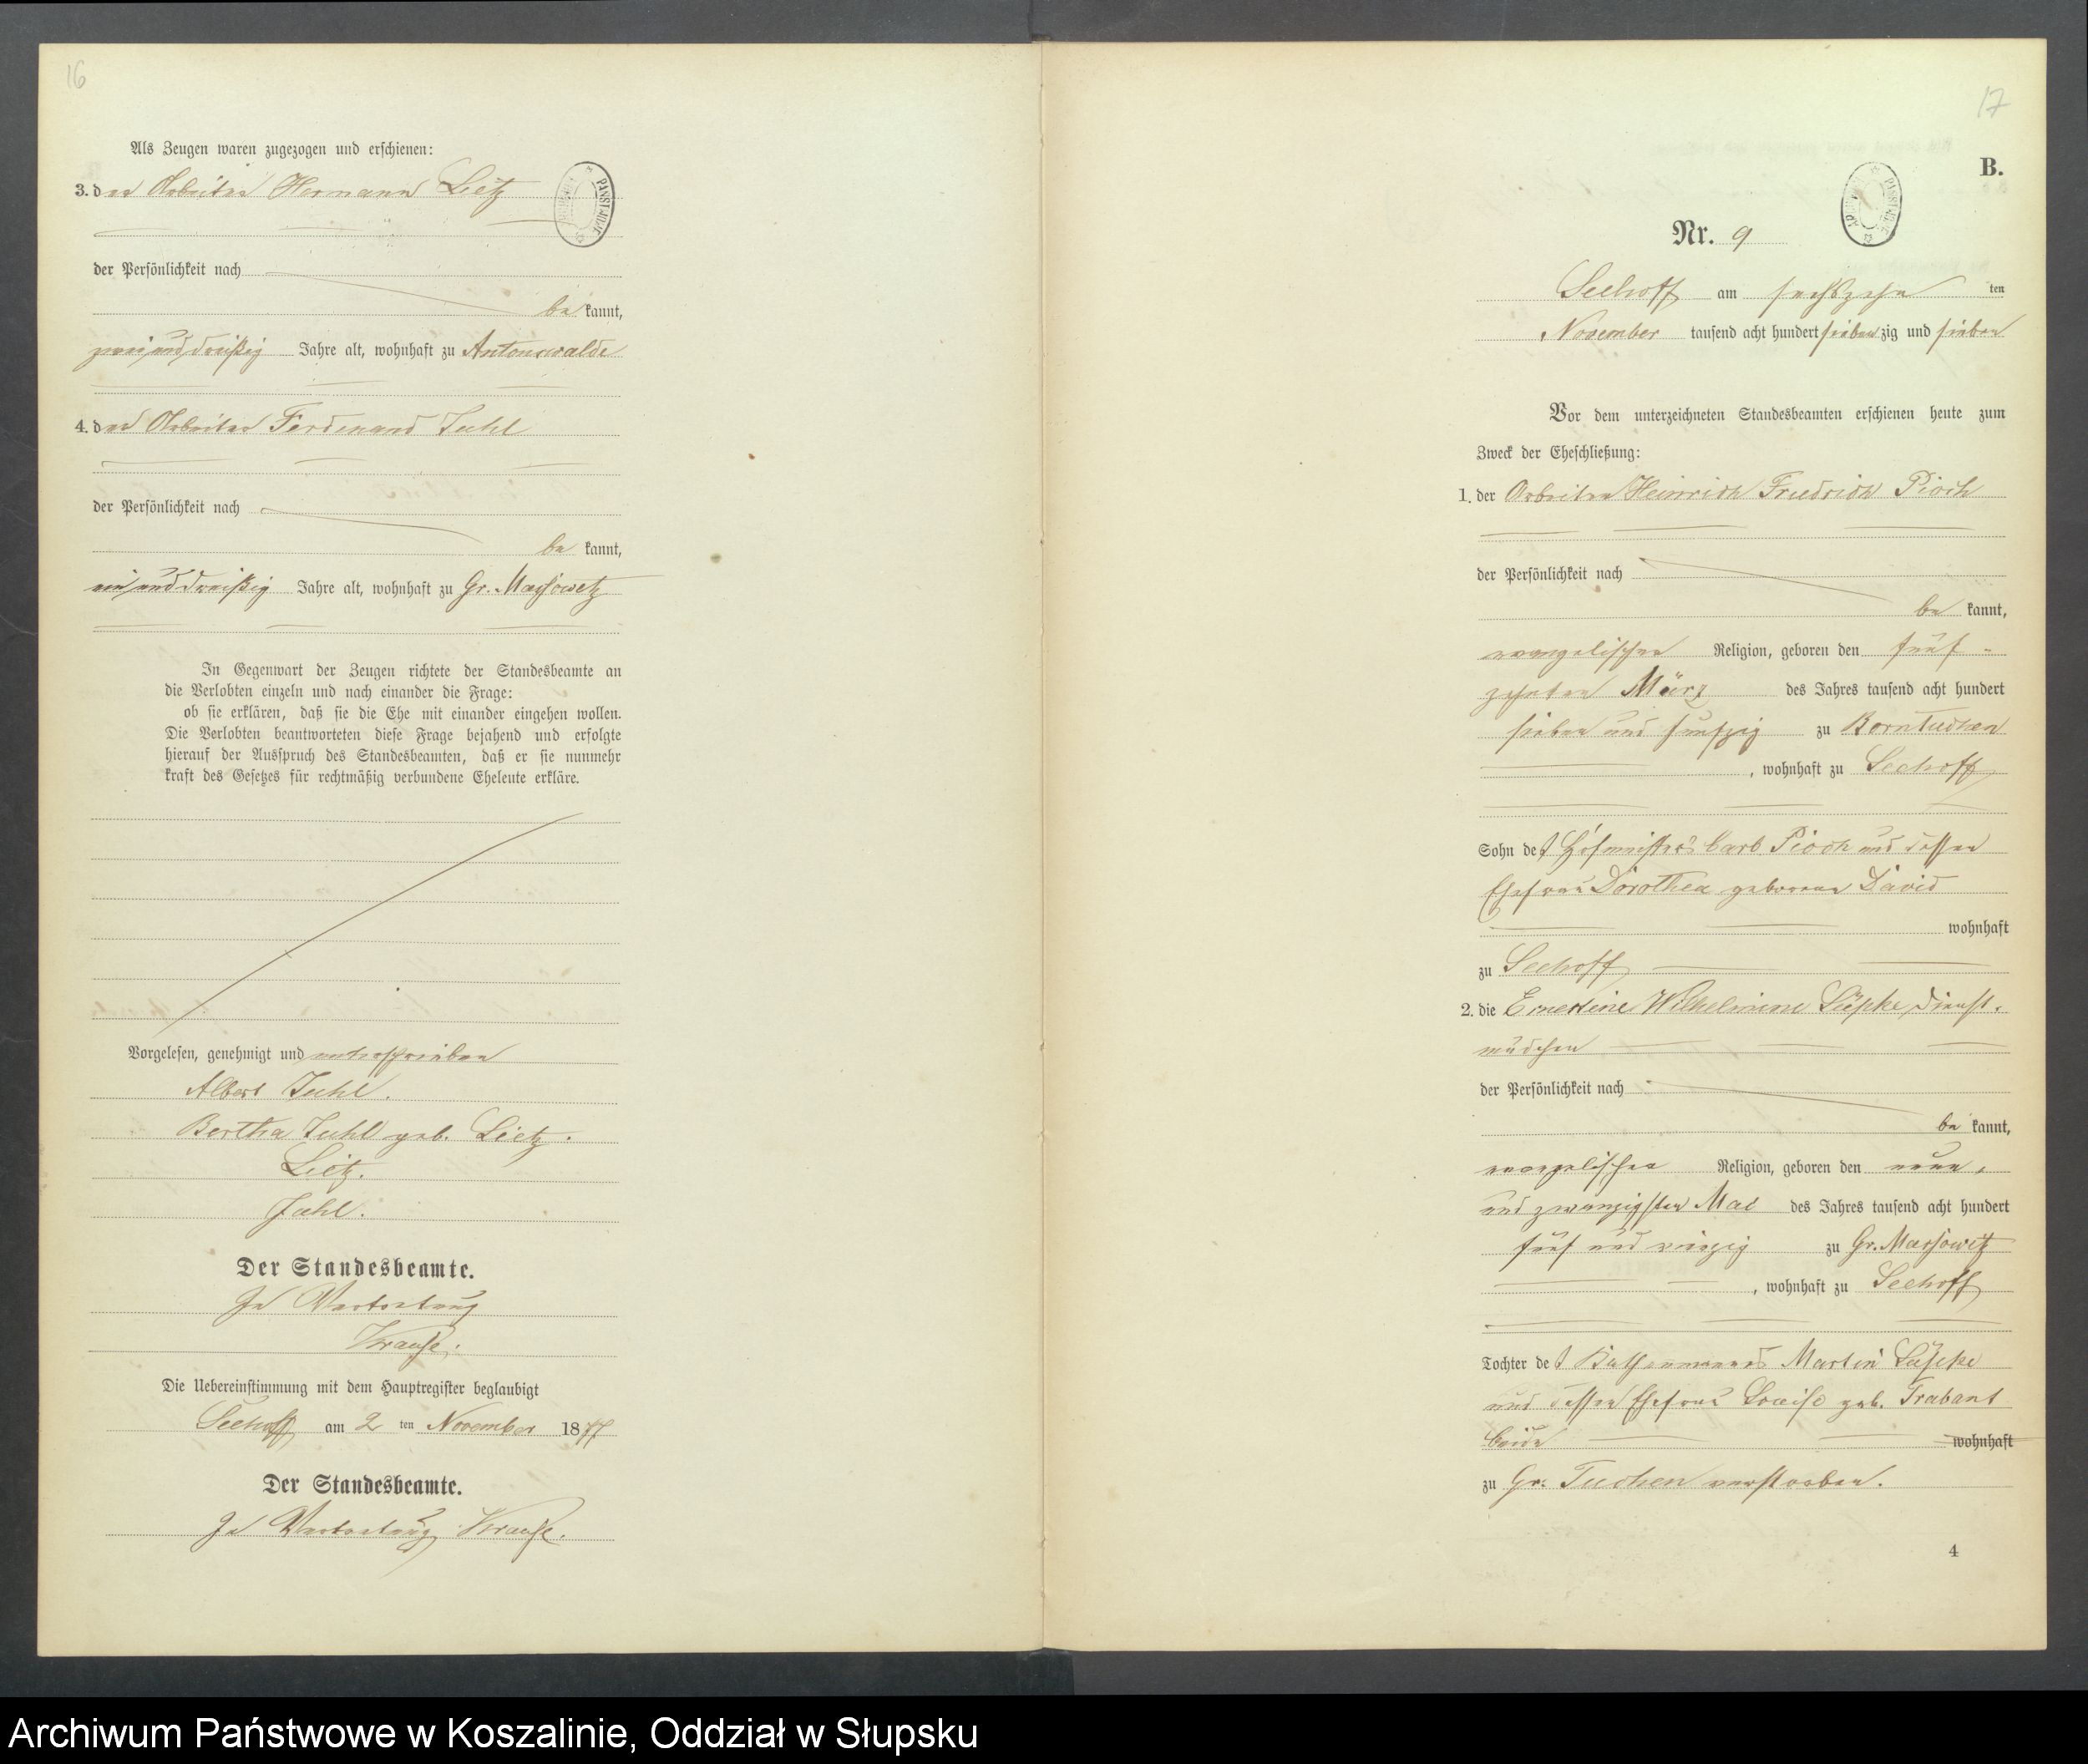 16
Als Zeugen waren zugezogen und erschienen:
3. der Arbeiter Hermann Lietz
der Persönlichkeit nach
be kannt,
zwei und dreißig Jahre alt, wohnhaft zu Antonswalde
4. der Arbeiter Ferdinand Juhl
der Persönlichkeit nach
be kannt,
ein und dreißig Jahre alt, wohnhaft zu Gr. Massowitz
In Gegenwart der Zeugen richtete der Standesbeamte an
die Verlobten einzeln und nach einander die Frage:
ob sie erklären, daß sie die Ehe mit einander eingehen wollen.
Die Verlobten beantworteten diese Frage bejahend und erfolgte
hierauf der Ausspruch des Standesbeamten, daß er sie nunmehr
kraft des Gesetzes für rechtmäßig verbundene Eheleute erkläre.
Vorgelesen, genehmigt und unterschrieben
Albert Juhl.
Bertha Juhl geb. Lietz.
Lietz.
Juhl.
Der Standesbeamte.
In Vertretung
Krause.
Die Uebereinstimmung mit dem Hauptregister beglaubigt
Seehoff am 2 ten November 1877
Der Standesbeamte.
In Vertretung Krause.
17
B.
Nr. 9
Seehoff am sechszehn ten
November tausend acht hundert siebenzig und sieben
Vor dem unterzeichneten Standesbeamten erschienen heute zum
Zweck der Eheschließung:
1. der Arbeiter Heinrich Friedrich Pioch
der Persönlichkeit nach
be kannt,
evangelischer Religion, geboren den fünf-
zehnten März des Jahres tausend acht hundert
sieben und funfzig zu Borntuchen
, wohnhaft zu Seehoff
Sohn des Hofmeisters Carl Pioch und dessen
Ehefrau Dorothea geborene David
wohnhaft
zu Seehoff
2. die Ernestine Wilhelmine Lüpke, Dienst-
mädchen
der Persönlichkeit nach
be kannt,
evangelischer Religion, geboren den neun-
und zwanzigsten Mai des Jahres tausend acht hundert
fünf und vierzig zu Gr. Massowitz
, wohnhaft zu Seehoff
Tochter des Kathenmanns Martin Lüpke
und dessen Ehefrau Louise geb. Trabant
beide wohnhaft
zu Gr. Tuchen verstorben.
4
Archiwum Państwowe w Koszalinie, Oddział w Słupsku